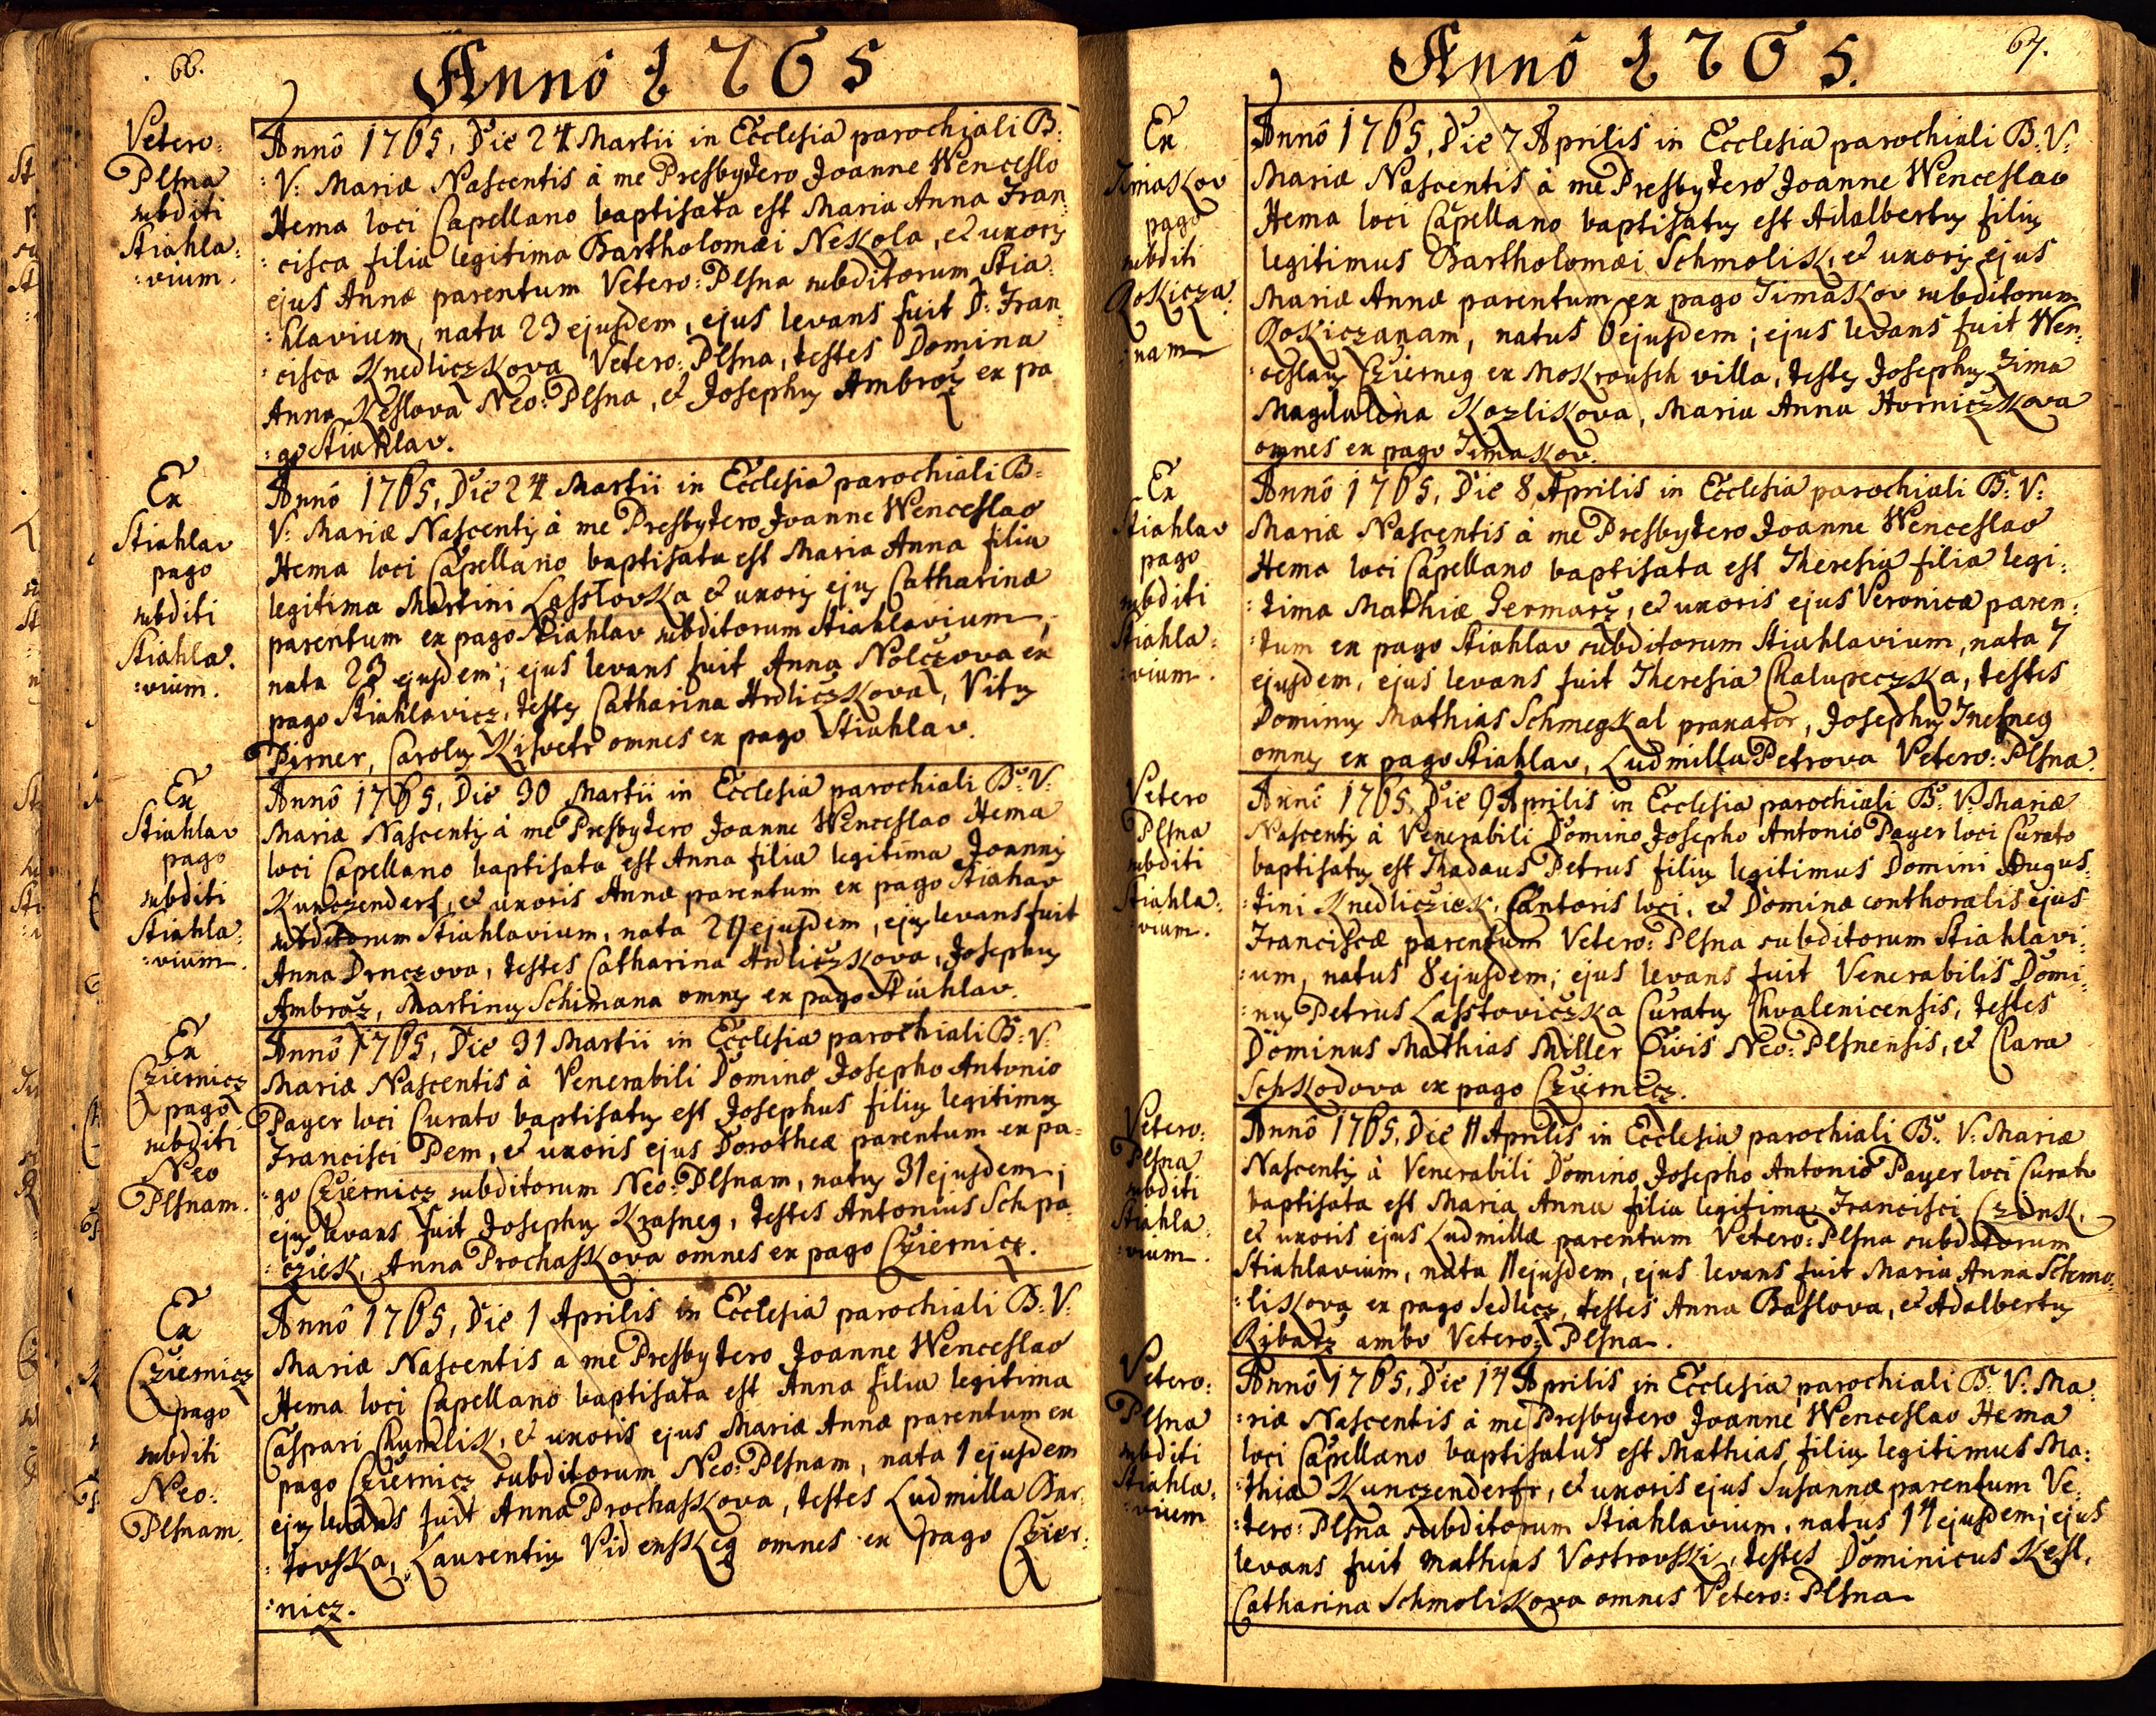 66.
Annô 1765
Vetero:
Plsna
subditi
Stiahla:
:vium.
Annô 1765, Die 24 Martii in Ecclesia parochiali B:
:V: Mariæ Nascentis à me Presbytero Joanne Wenceslo
Hema loci Capellano baptisata est Maria Anna Fran:
:cisca filia legitima Bartholomæi Nekola, et uxoris
ejus Annæ parentum Vetero: Plsna subditorum Stia:
:hlavium, nata 23 ejusdem, ejus levans fuit D: Fran:
:cisca Knedliczkova Vetero: Plsna, testes Domina
Anna Keslova Neo: Plsna, et Josephus Ambroz ex pa
:go Stiahlav.
Ex
Stiahlav
pago
subditi
Stiahla:
:vium.
Annô 1765, Die 24 Martii in Ecclesia parochiali B:
V: Mariæ Nascentis à me Presbytero Joanne Wenceslao
Hema loci Capellano baptisata est Maria Anna filia
legitima Martini Lasstovska et uxoris ejus Catharinæ
parentum ex pago Stiahlav subditorum Stiahlavium,
nata 23 ejusdem; ejus levans fuit Anna Nolczova ex
pago Stiahlavicz, testes Catharina Hrdliczkova, Vitus
Pirner, Carolus Kisvetr omnes ex pago Stiahlav.
Ex
Stiahlav
pago
subditi
Stiahla:
:vium.
Annô 1765, Die 30 Martii in Ecclesia parochiali B: V:
Mariæ Nascentis à me Presbytero Joanne Wenceslao Hema
loci Capellano baptisata est Anna filia legitima Joannis
Kunczenderf, et uxoris Annæ parentum ex pago Stiahav
subditorum Stiahlavium, nata 29 ejusdem, ejus levans fuit
Anna Drnczova, testes Catharina Hrdliczkova, Josephus
Ambroz, Martinus Schimana omnes ex pago Stiahlav.
Ex
Cziernicz
pago
subditi
Neo
Plsnam.
Annô 1765, Die 31 Martii in Ecclesia parochiali B: V:
Mariæ Nascentis à Venerabili Domino Josepho Antonio
Payer loci Curato baptisatus est Josephus filius legitimus
Francisci Pem, et uxoris ejus Dorotheæ parentum ex pa:
:go Cziernicz subditorum Neo: Plsnam, natus 31 ejusdem;
ejus levans fuit Josephus Krasneg, testes Antonius Schpa:
:cziek, Anna Prochaskova omnes ex pago Cziernicz.
Ex
Cziernicz
pago
subditi
Neo:
Plsnam.
Annô 1765, Die 1 Aprilis in Ecclesia parochiali B: V:
Mariæ Nascentis a me Presbytero Joanne Wenceslao
Hema loci Capellano baptisata est Anna filia legitima
Caspari Chumlik, et uxoris ejus Mariæ Annæ parentum ex
pago Cziernicz subditorum Neo: Plsnam, nata 1 ejusdem
ejus levans fuit Anna Prochaskova, testes Ludmilla Bar:
:tovska, Laurentius Videnskeg omnes ex pago Czier:
:nicz.
67.
Annô 1765.
Ex
Timakov
pago
subditi
Rokicza:
:nam
Annô 1765, Die 7 Aprilis in Ecclesia parochiali B: V:
Mariæ Nascentis à me Presbytero Joanne Wenceslao
Hema loci Capellano baptisatus est Adalbertus filius
legitimus Bartholomæi Schmolik, et uxoris ejus
Mariæ Annæ parentum ex pago Timakov subditorum
Rokiczanam, natus 6 ejusdem; ejus levans fuit Wen:
:ceslaus Czierneg ex Mokrausch villa, testes Josephus Zima
Magdalena Kozlikova, Maria Anna Horniczkova
omnes ex pago Timakov.
Ex
Stiahlav
pago
subditi
Stiahla:
:vium.
Annô 1765, Die 8 Aprilis in Ecclesia parochiali B: V:
Mariæ Nascentis à me Presbytero Joanne Wenceslao
Hema loci Capellano baptisata est Theresia filia legi:
:tima Mathiæ Germarz, et uxoris ejus Veronicæ paren:
:tum ex pago Stiahlav subditorum Stiahlavium, nata 7
ejusdem, ejus levans fuit Theresia Chalupeczka, testes
Dominus Mathias Schmegkal pranator, Josephus Inesneg
omnes ex pago Stiahlav, Ludmilla Petrova Vetero: Plsna.
Vetero
Plsna
subditi
Stiahla:
:vium.
Annô 1765, Die 9 Aprilis in Ecclesia parochiali B: V: Mariæ
Nascentis à Venerabili Domino Josepho Antonio Payer loci Curato
baptisatus est Thadæus Petrus filius legitimus Domini Augus:
:tini Knedlicziek, Cantoris loci, et Dominæ conthoralis ejus
Franciscæ parentum Vetero: Plsna subditorum Stiahlavi:
:um, natus 8 ejusdem; ejus levans fuit Venerabilis Domi:
:nus Petrus Lasstoviczka Curatus Chvalenicensis, testes
Dominus Mathias Miller Civis Neo: Plsnensis, et Clara
Schkodova ex pago Cziernicz.
Vetero:
Plsna
subditi
Stiahla:
:vium.
Annô 1765, Die 11 Aprilis in Ecclesia parochiali B: V: Mariæ
Nascentis à Venerabili Domino Josepho Antonio Payer loci Curato
baptisata est Maria Anna filia legitima Francisci Czink,
et uxoris ejus Ludmillæ parentum Vetero: Plsna subditorum
Stiahlavium, nata 11 ejusdem, ejus levans fuit Maria Anna Schmo:
:likova ex pago Sedlecz, testes Anna Baslova, et Adalbertus
Ribarz ambo Vetero: Plsna.
Vetero:
Plsna
subditi
Stiahla:
:vium
Annô 1765, Die 14 Aprilis in Ecclesia parochiali B: V: Ma:
:riæ Nascentis à me Presbytero Joanne Wenceslao Hema
loci Capellano baptisatus est Mathias filius legitimus Ma:
:thiæ Kunczenderfr, et uxoris ejus Susannæ parentum Ve:
:tero: Plsna subditorum Stiahlavium, natus 14 ejusdem; ejus
levans fuit Mathias Vostrovski, testes Dominicus Kesl,
Catharina Schmolikova omnes Vetero: Plsna